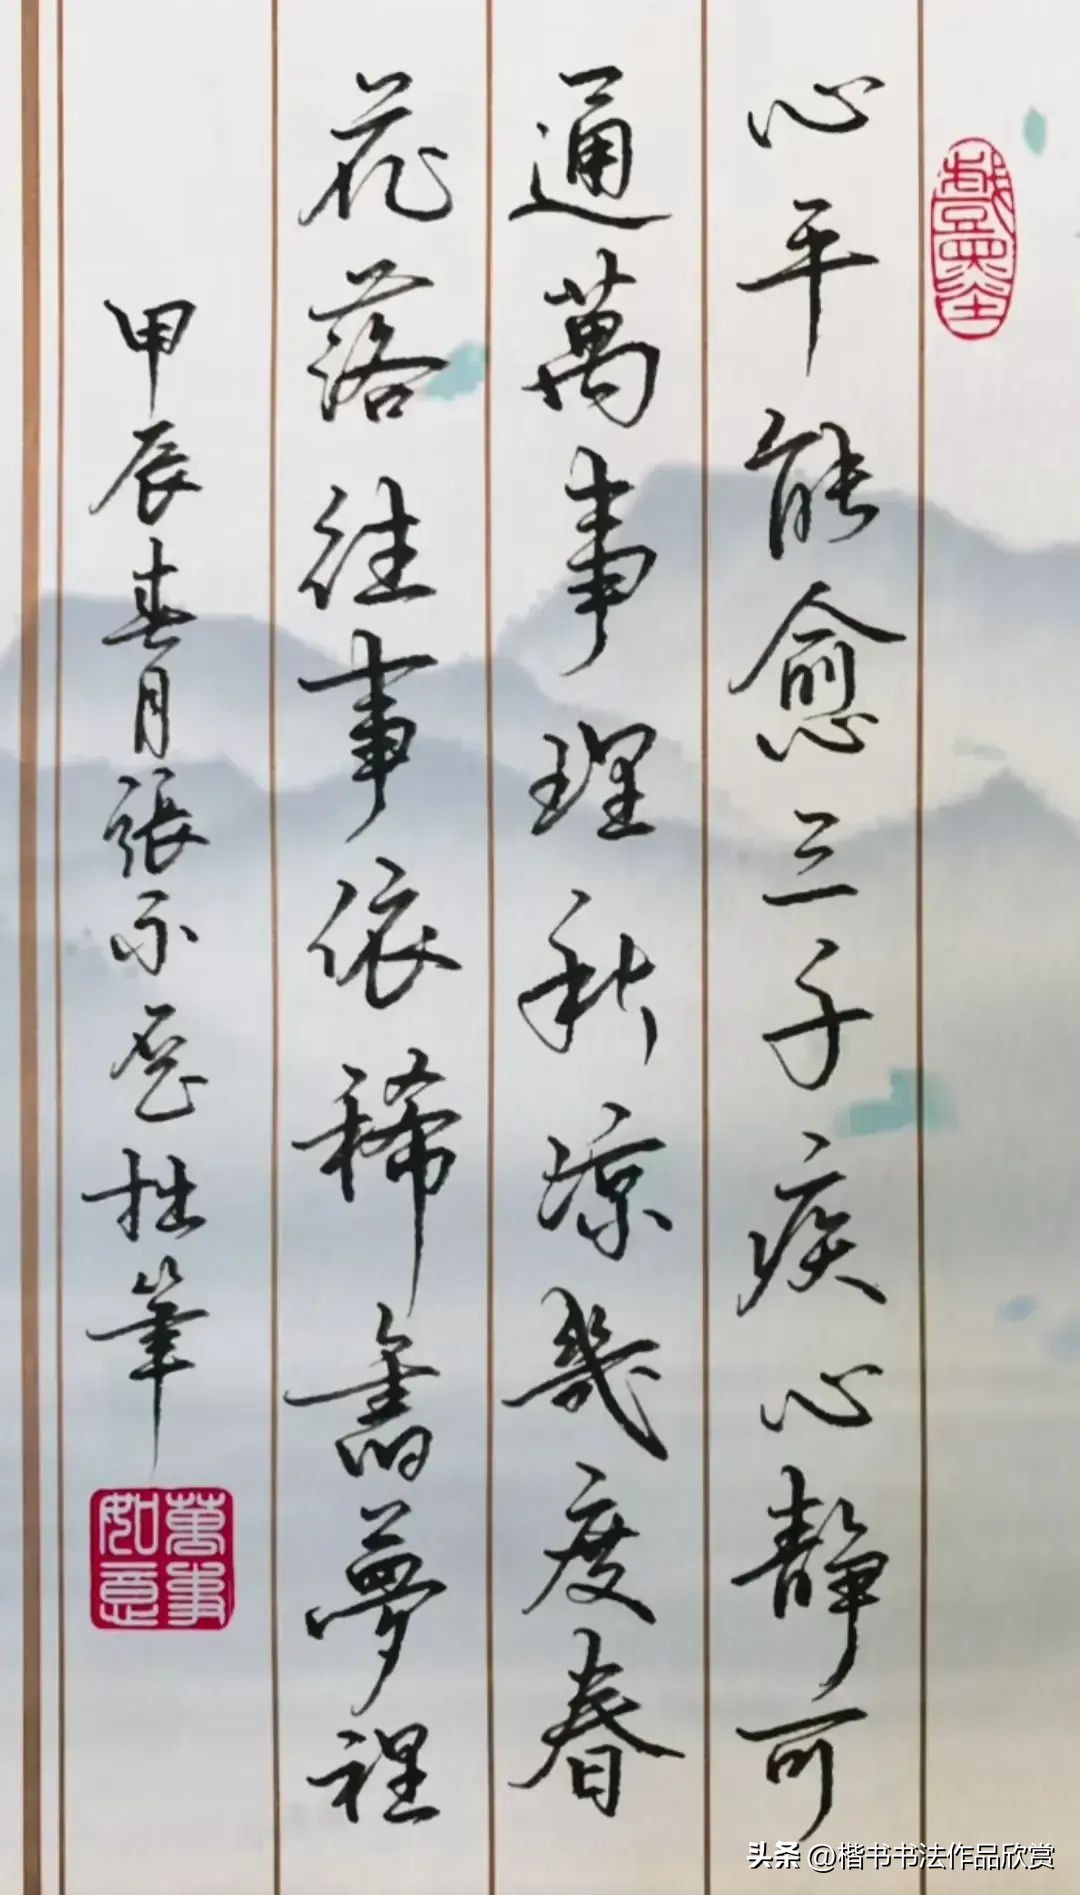 心平能愈三子疾心静可
通萬事理秋凉幾度春
花落往事依稀舊夢裡
甲辰春月張不愚拙筆
萬事如意
头条 @楷书书法作品欣赏